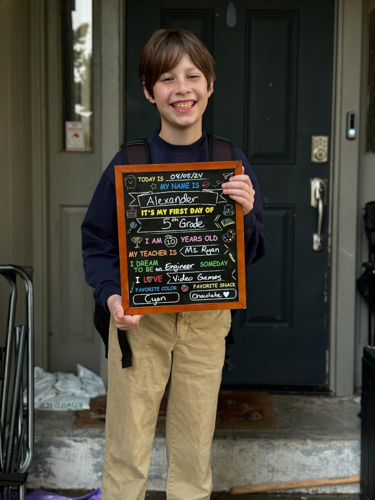 TODAY IS 09/03/24
MY NAME IS
Alexander
IT'S MY FIRST DAY OF
5th Grade
I AM 10 YEARS OLD
MY TEACHER IS Ms. Ryan
I DREAM
TO BE an Engineer SOMEDAY
I LOVE Video Games
FAVORITE COLOR FAVORITE SNACK
Cyan Chocolate ♥